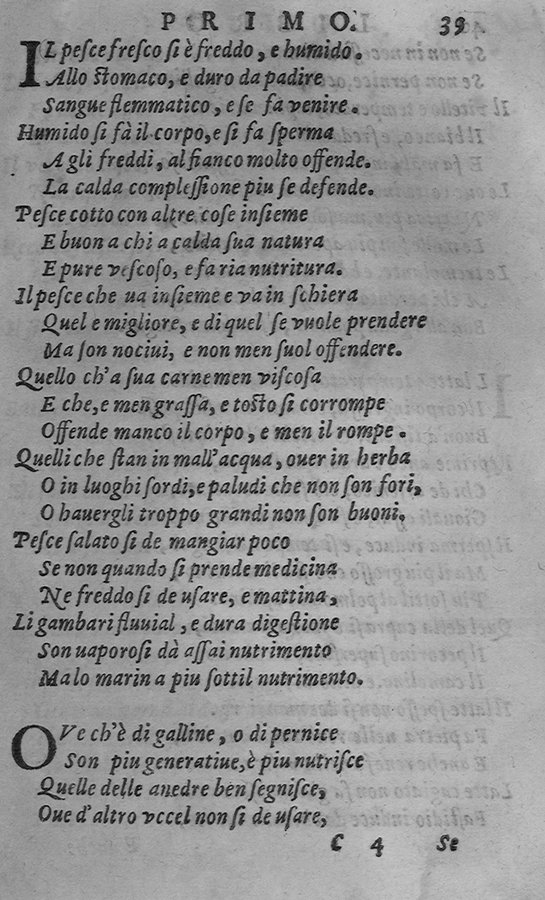 PRIMO. 39
IL pesce fresco si è freddo, e humido.
Allo stomaco, e duro da padire
Sangue flemmatico, e se fa venire.
Humido si fà il corpo, e si fa sperma
A gli freddi, al fianco molto offende.
La calda complessione piu se defende.
Pesce cotto con altre cose insieme
E buon a chi a calda sua natura
E pure vescoso, e fa ria nutritura.
Il pesce che ua insieme e va in schiera
Quel e migliore, e di quel se vuole prendere
Ma son nociui, e non men suol offendere.
Quello ch'a sua carne men viscosa
E che, e men grassa, e tosto si corrompe
Offende manco il corpo, e men il rompe.
Quelli che stan in mall'acqua, ouer in herba
O in luoghi sordi, e paludi che non son fori,
O hauergli troppo grandi non son buoni.
Pesce salato si de mangiar poco
Se non quando si prende medicina
Ne freddo si de usare, e mattina,
Li gambari fluuial, e dura digestione
Son uaporosi dà assai nutrimento
Ma lo marin a piu sottil nutrimento.
OVe ch'è di galline, o di pernice
Son piu generatiue, è piu nutrisce
Quelle delle anedre ben segnisce,
Oue d'altro vccel non si de usare,
C 4 Se